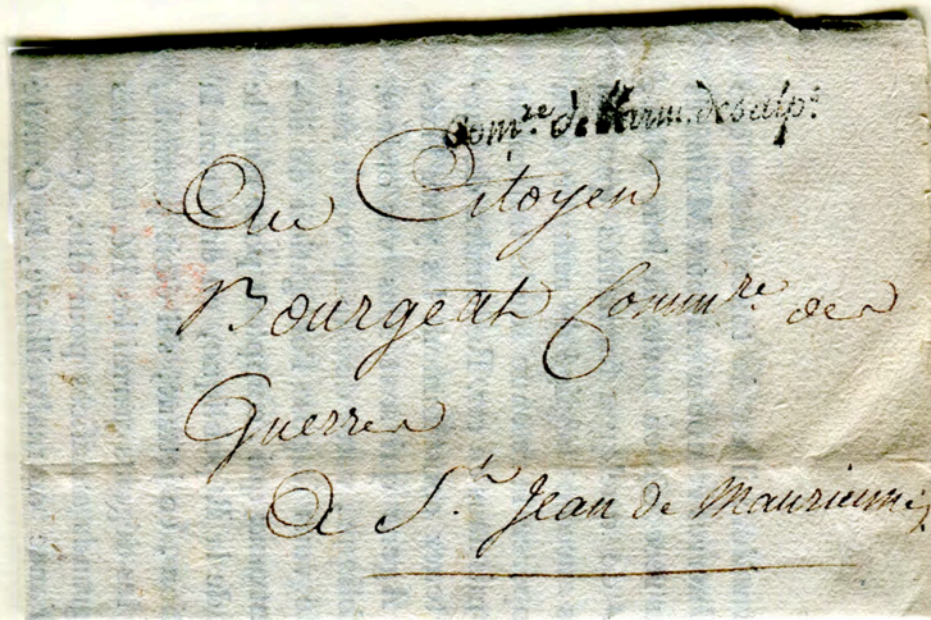 Com.re de l'arm. des alps
Au Citoyen
Bourgeat Comm.re des
Guerres
A S.t Jean de Maurienne